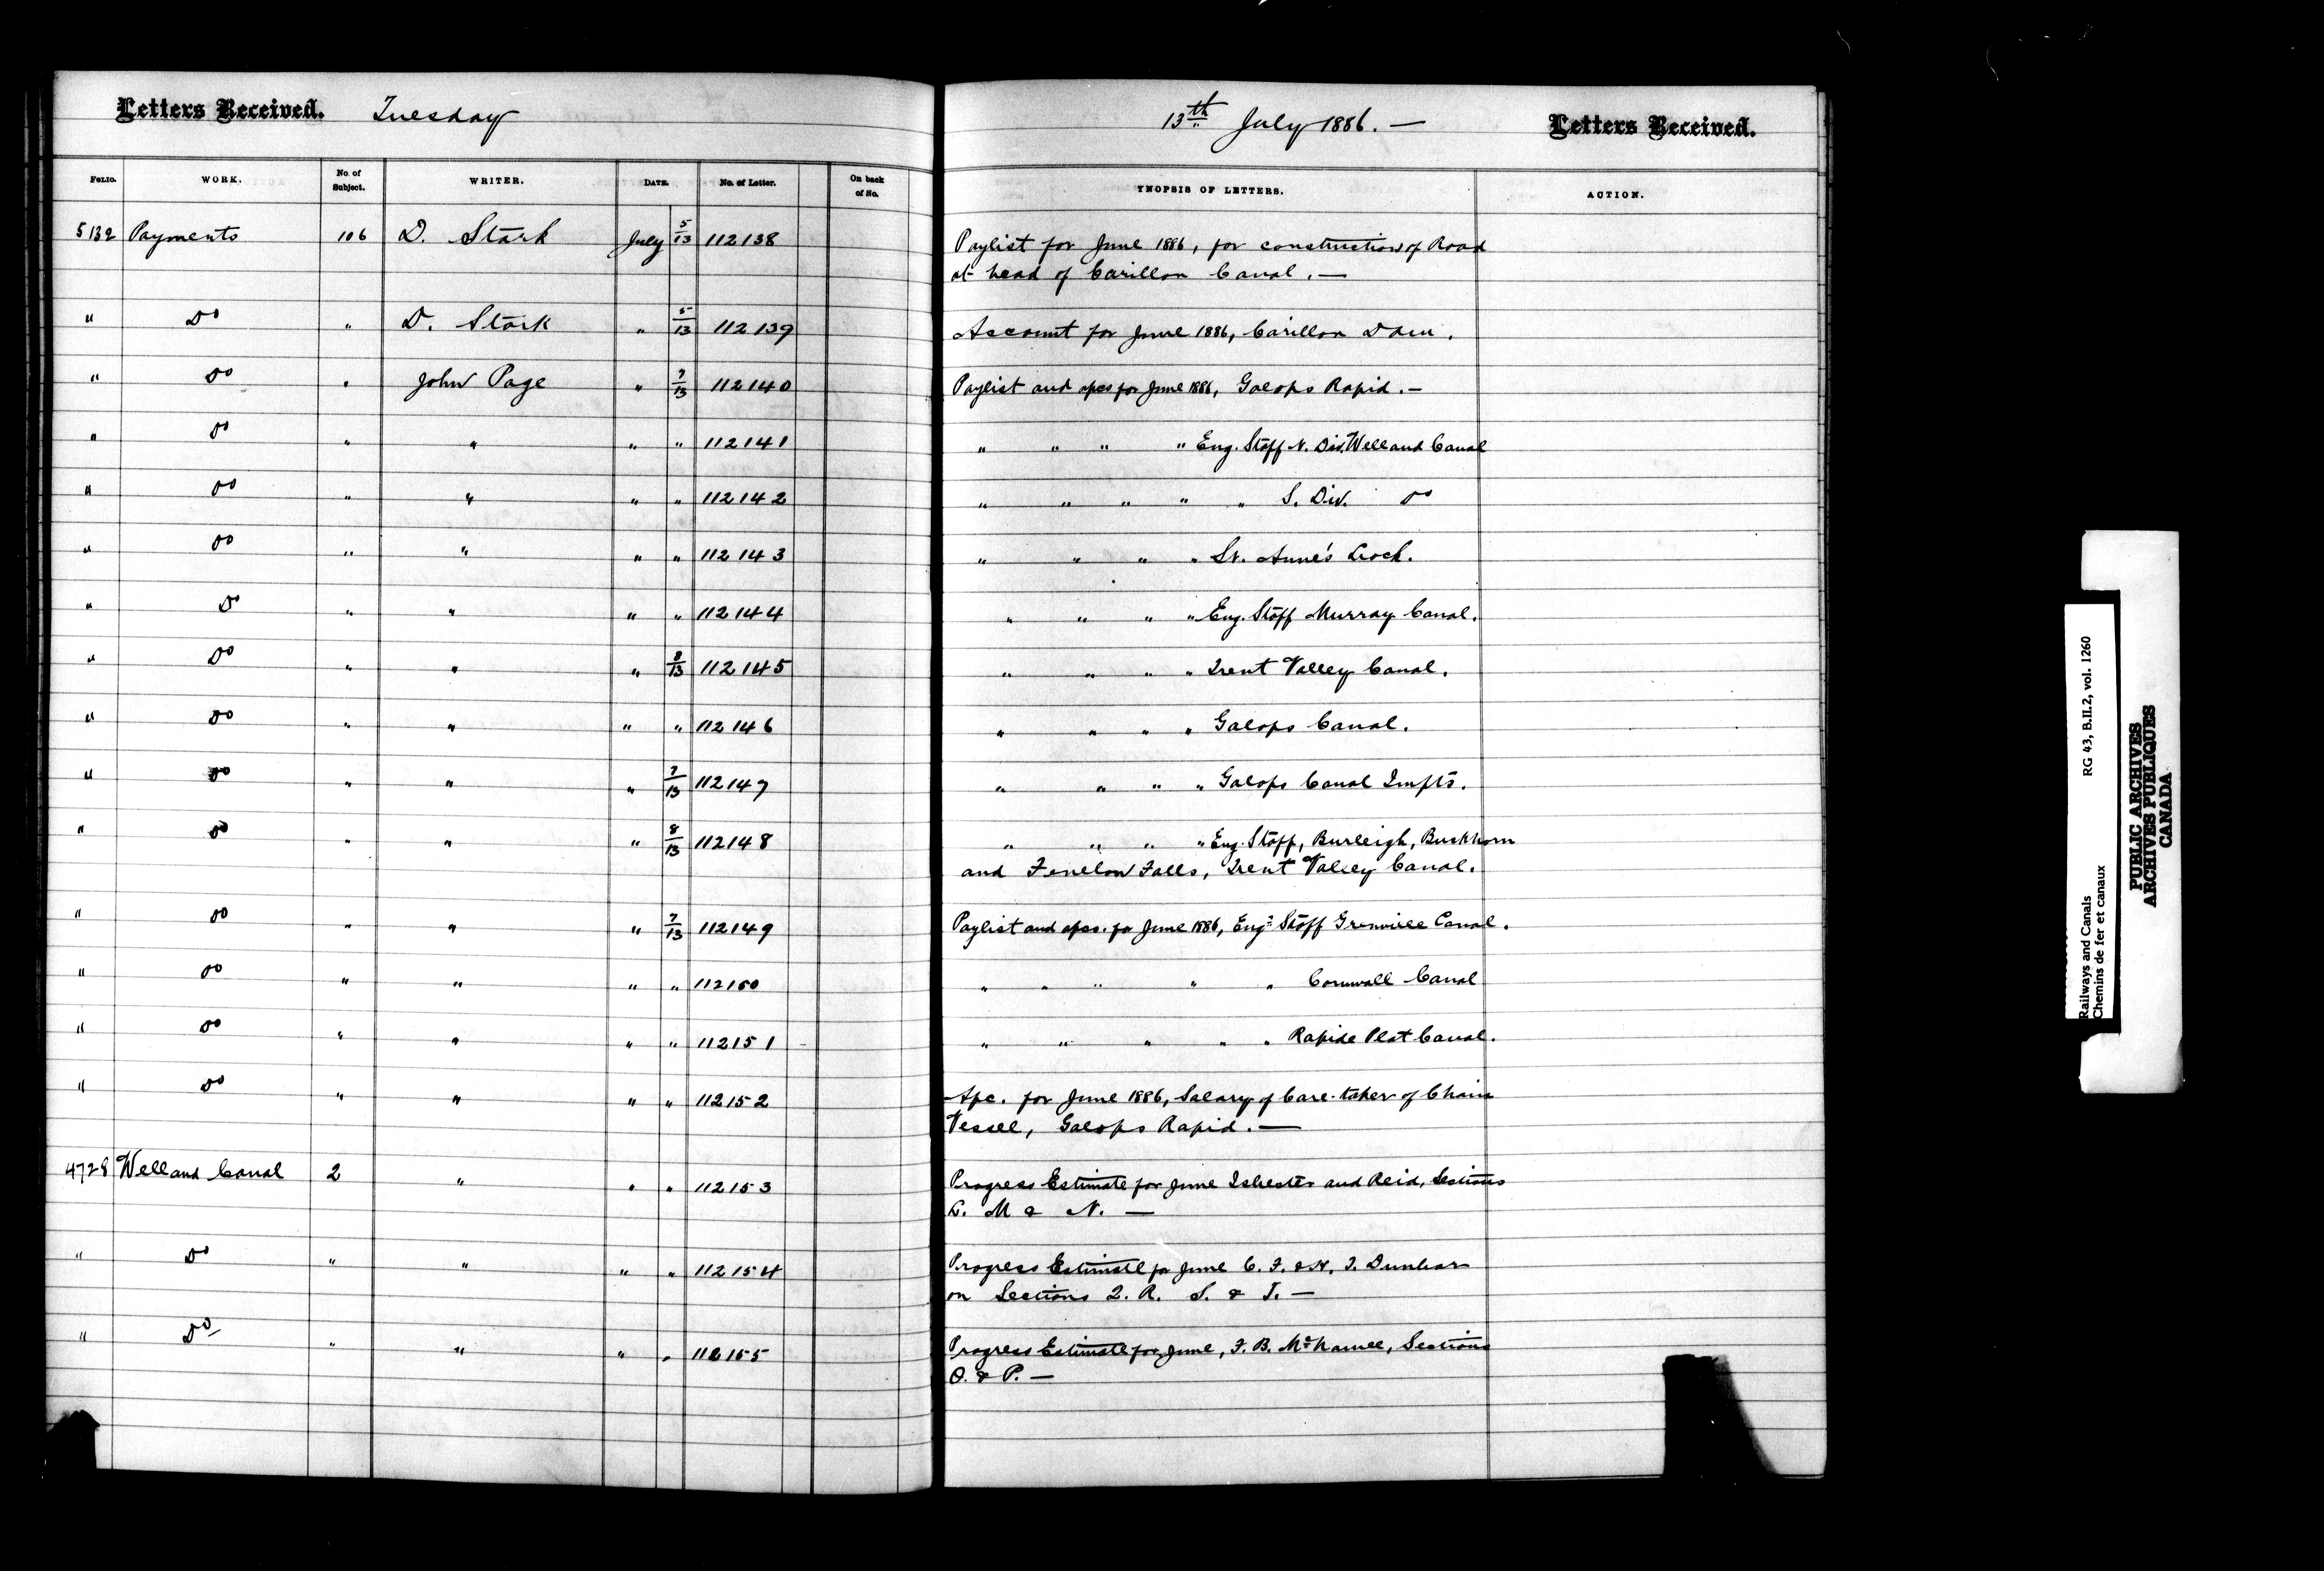 Letters Received. Tuesday
13th July 1886. —
Letters Received.
FOLIO. WORK. No. of Subject. WRITER. DATE. No. of Letter. On back of No.
YNOPSIS OF LETTERS. ACTION.
5132 Payments 106 D. Stark July 5/13 112138 Paylist for June 1886, for construction of Road
at head of Carillon Canal. —
" Do " D. Stark " 5/13 112139 Account for June 1886, Carillon Dam.
" Do " John Page " 7/13 112140 Paylist and apcs for June 1886, Galops Rapid. —
" Do " " " " 112141 " " " " Eng. Staff N. Div. Welland Canal
" Do " " " " 112142 " " " " " S. Div. Do
" Do " " " " 112143 " " " " St. Anne's Lock.
" Do " " " " 112144 " " " " Eng. Staff Murray Canal.
" Do " " " 8/13 112145 " " " " Trent Valley Canal.
" Do " " " " 112146 " " " " Galops Canal.
" Do " " " 7/13 112147 " " " " Galops Canal Impts.
" Do " " " 8/13 112148 " " " " Eng. Staff, Burleigh, Buckhorn
and Fenelon Falls, Trent Valley Canal.
" Do " " " 7/13 112149 Paylist and apcs. for June 1886, Engr Staff Grenville Canal.
" Do " " " " 112150 " " " " " Cornwall Canal
" Do " " " " 112151 " " " " " Rapide Plat Canal.
" Do " " " " 112152 Apc. for June 1886, Salary of Care-taker of Chain
Vessel, Galops Rapid. —
4728 Welland Canal 2 " " " 112153 Progress Estimate for June Isbester and Reid, Sections
L. M & N. —
" Do " " " " 112154 Progress Estimate for June C. F. & H. T. Dunbar
on Sections Q. R. S. & T. —
" Do " " " " 112155 Progress Estimate for June, F. B. McNamee, Sections
O. & P. —
RG 43, B.II.2, vol. 1260
Railways and Canals
Chemins de fer et canaux
PUBLIC ARCHIVES
ARCHIVES PUBLIQUES
CANADA